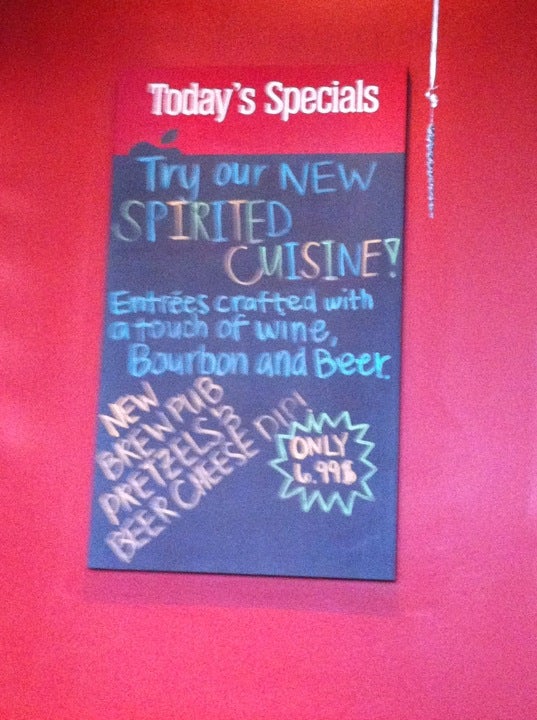 Today's Specials
Try our NEW
SPIRITED
CUISINE!
Entrées crafted with
a touch of wine,
Bourbon and Beer.
NEW
BREW PUB
PRETZELS &
BEER CHEESE DIP!
ONLY
6.99$